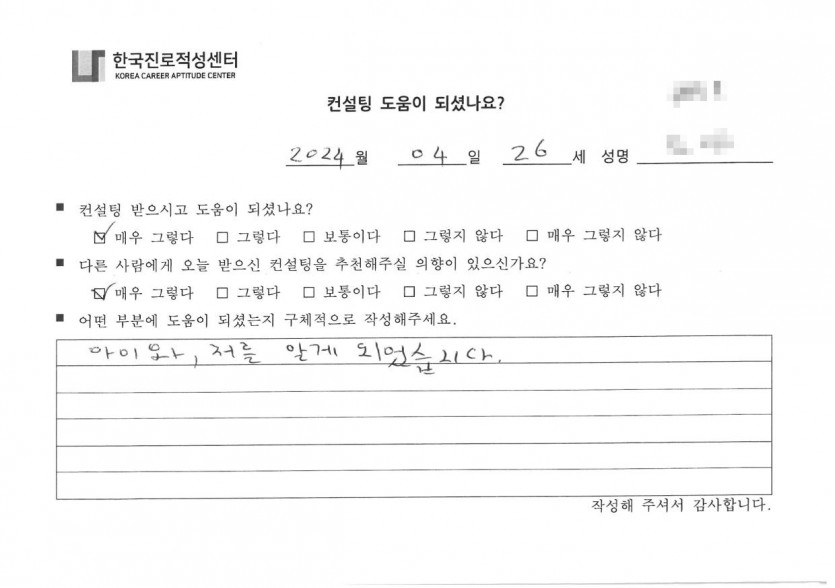 한국진로적성센터
KOREA CAREER APTITUDE CENTER
컨설팅 도움이 되셨나요?
2024월 04일 26세 성명
■ 컨설팅 받으시고 도움이 되셨나요?
☑ 매우 그렇다 □ 그렇다 □ 보통이다 □ 그렇지 않다 □ 매우 그렇지 않다
■ 다른 사람에게 오늘 받으신 컨설팅을 추천해주실 의향이 있으신가요?
☑ 매우 그렇다 □ 그렇다 □ 보통이다 □ 그렇지 않다 □ 매우 그렇지 않다
■ 어떤 부분에 도움이 되셨는지 구체적으로 작성해주세요.
아이와, 저를 알게 되었습니다.
작성해 주셔서 감사합니다.